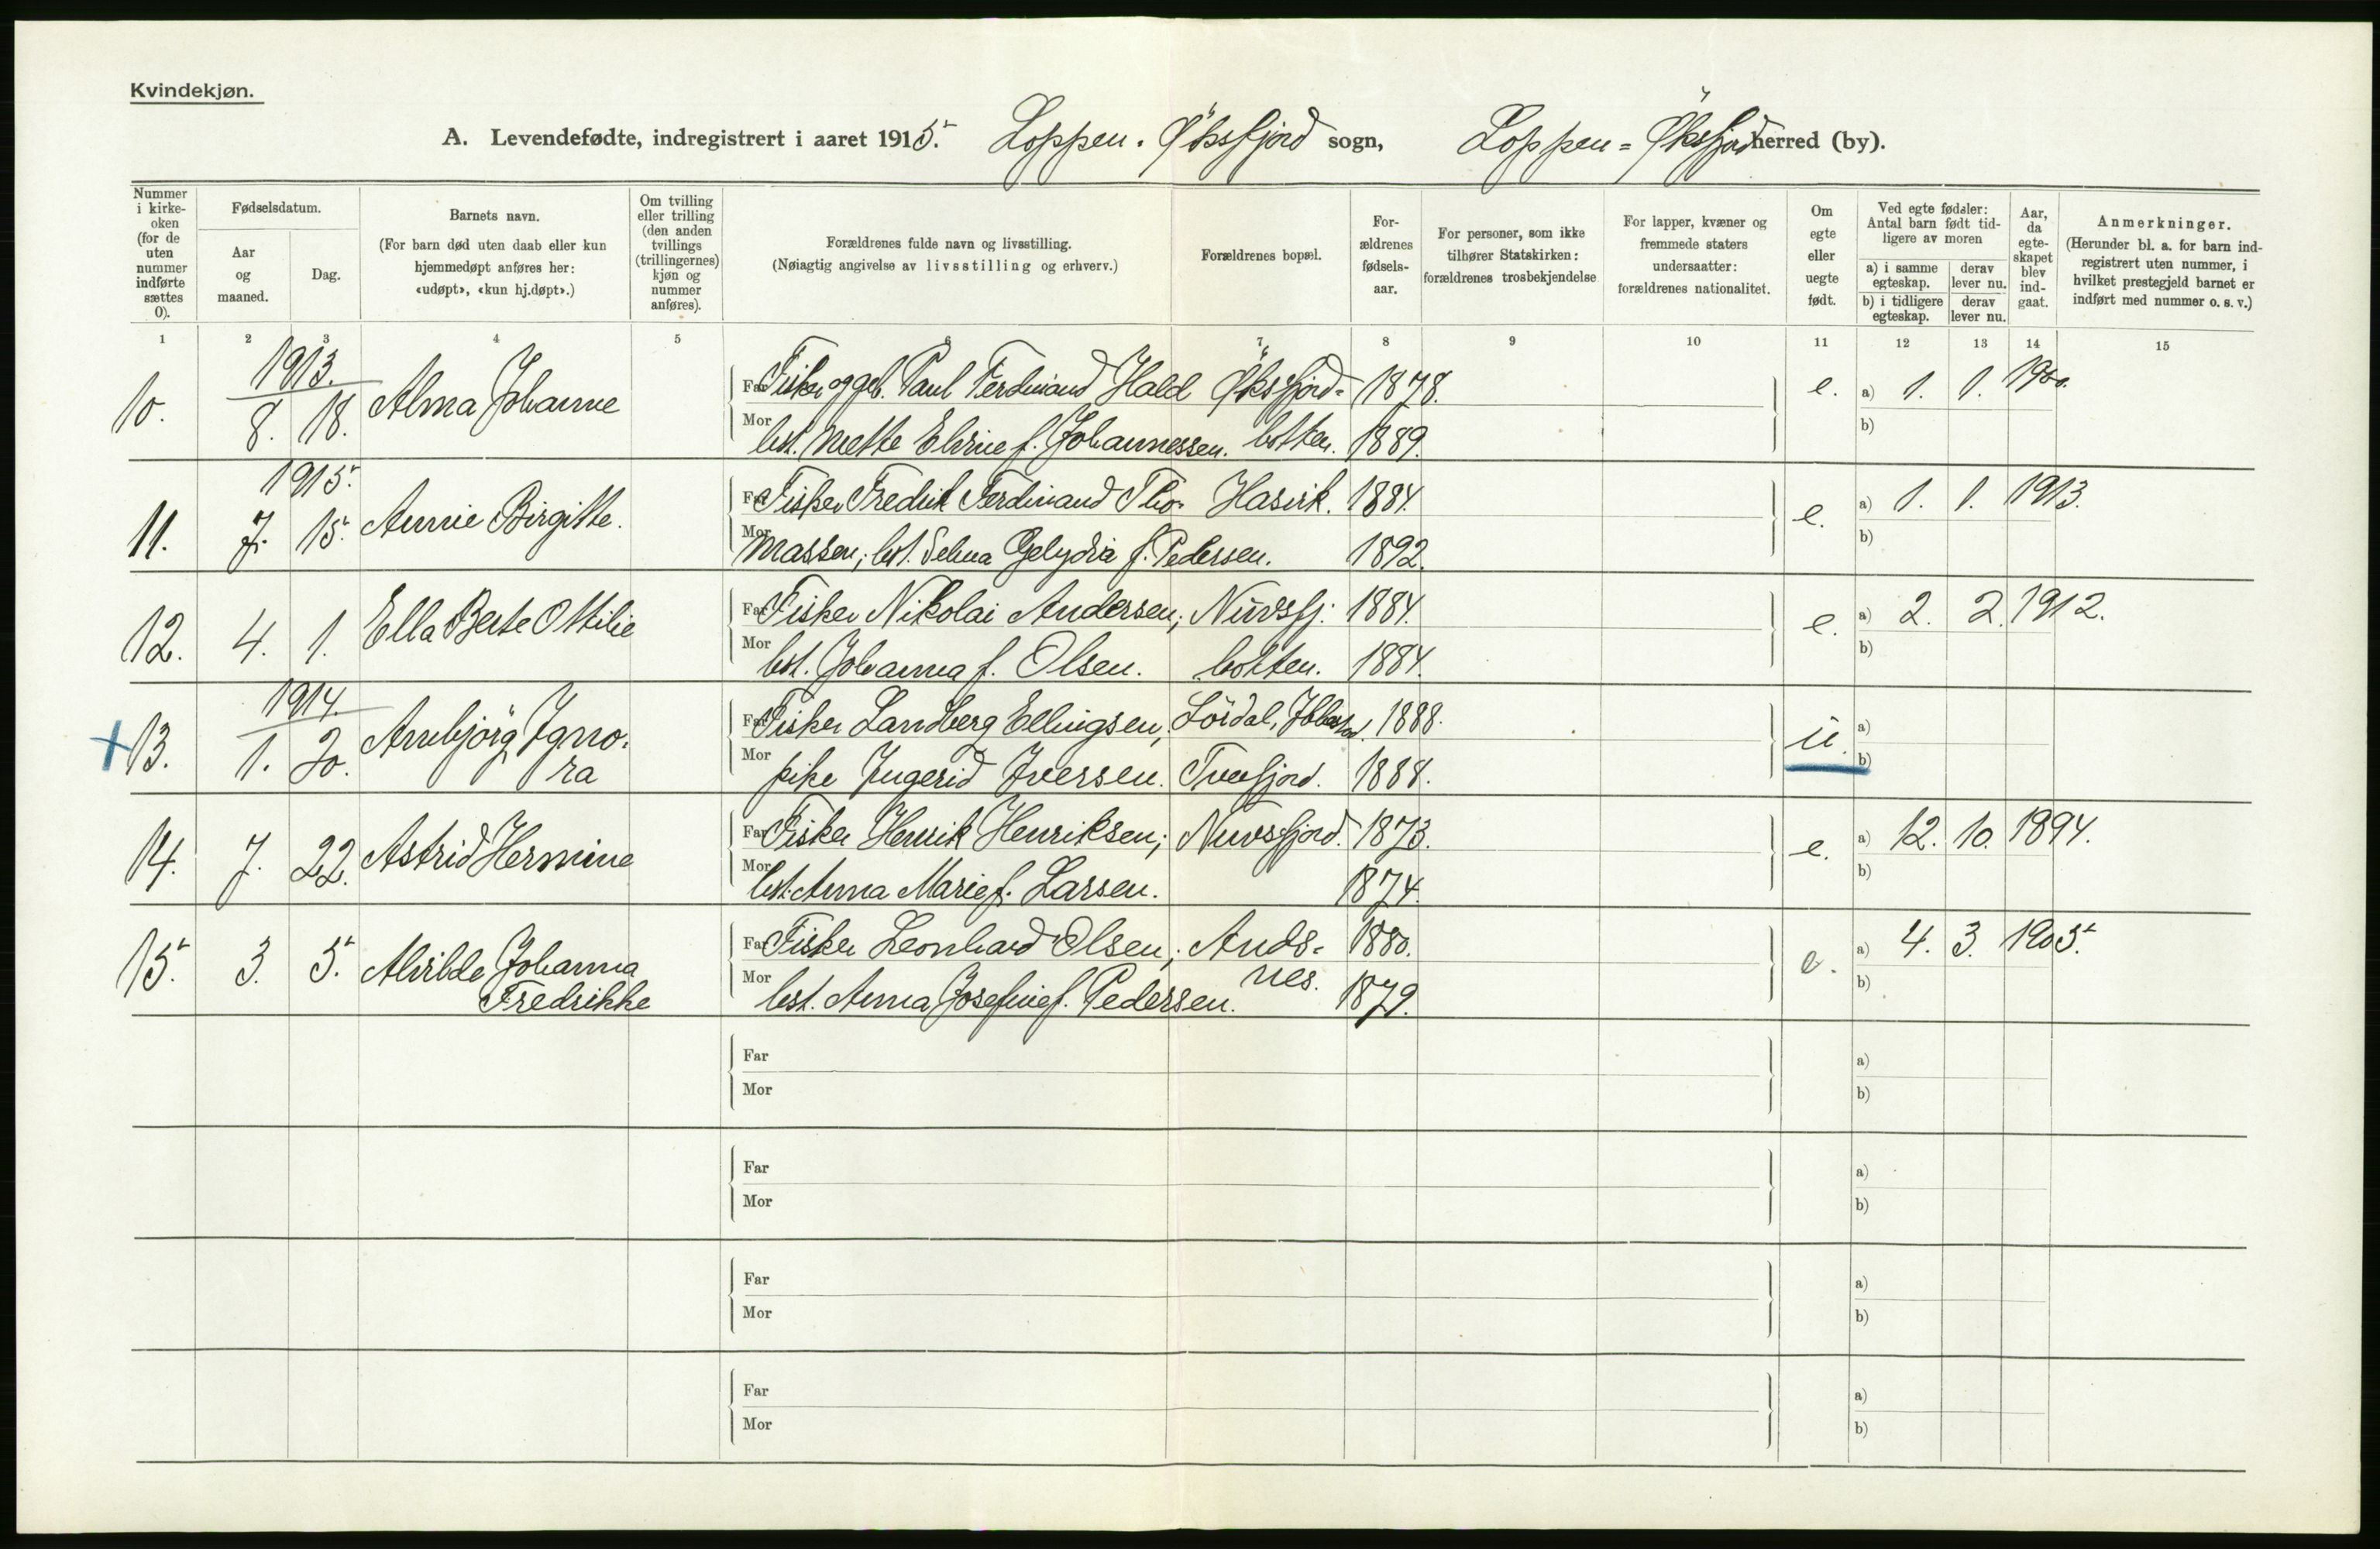 Kvindekjøn.
A. Levendefødte, indregistrert i aaret 1915. Loppen - Øksfjord sogn, Loppen = Øksfjord herred (by).
Nummer i kirke- oken (for de uten nummer indførte sættes 0).
Fødselsdatum.
Aar og maaned.
Dag.
Barnets navn.
(For barn død uten daab eller kun hjemmedøpt anføres her: «udøpt», «kun hj.døpt».)
Om tvilling eller trilling (den anden tvillings (trillingernes) kjøn og nummer anføres).
Forældrenes fulde navn og livsstilling.
(Nøiagtig angivelse av livsstilling og erhverv.)
Forældrenes bopæl.
For- ældrenes fødsels- aar.
For personer, som ikke tilhører Statskirken: forældrenes trosbekjendelse
For lapper, kvæner og fremmede staters undersaatter: forældrenes nationalitet.
Om egte eller uegte født.
Ved egte fødsler: Antal barn født tid- ligere av moren
a) i samme egteskap.
derav lever nu.
b) i tidligere egteskap.
derav lever nu.
Aar, da egte- skapet blev ind- gaat.
Anmerkninger.
(Herunder bl. a. for barn ind- registrert uten nummer, i hvilket prestegjeld barnet er indført med nummer o. s. v.)
1 2 3 4 5 6 7 8 9 10 11 12 13 14 15
1913.
10. 8. 18. Alma Johanne Far Fisker og gb. Paul Ferdinand Hald Øksfjord= 1878. e. a) 1. 1. 1900.
Mor hst. Mette Elvine f. Johannessen. botten. 1889. b)
1915.
11. 7. 15. Annie Birgitte. Far Fisker Fredrik Ferdinand Tho- Hasvik. 1884. e. a) 1. 1. 1913.
Mor massen; hst. Selma f. Pedersen. 1892. b)
12. 4. 1. Ella Berte Ottilie Far Fisker Nikolai Andersen; Nuvsfj. 1884. e. a) 2. 2. 1912.
Mor hst. Johanna f. Olsen. botten. 1884. b)
1914.
+ 13. 1. 20. Annbjörg Ragno- Far Fisker Landberg Ellingsen, 1888. u. a)
ra Mor pike Ingerid Iversen. Tverfjord. 1888. b)
14. 7. 22. Astrid Hermine Far Fisker Henrik Henriksen; Nuvsfjord. 1873. e. a) 12. 10. 1894.
Mor hst. Anna Marie f. Larsen. 1874. b)
15. 3. 5. Alvilde Johanna Far Fisker Leonhard Olsen; Ands= 1880. e. a) 4. 3. 1905.
Fredrikke Mor hst. Anna Josefine f. Pedersen. nes. 1879. b)
Far a)
Mor b)
Far a)
Mor b)
Far a)
Mor b)
Far a)
Mor b)